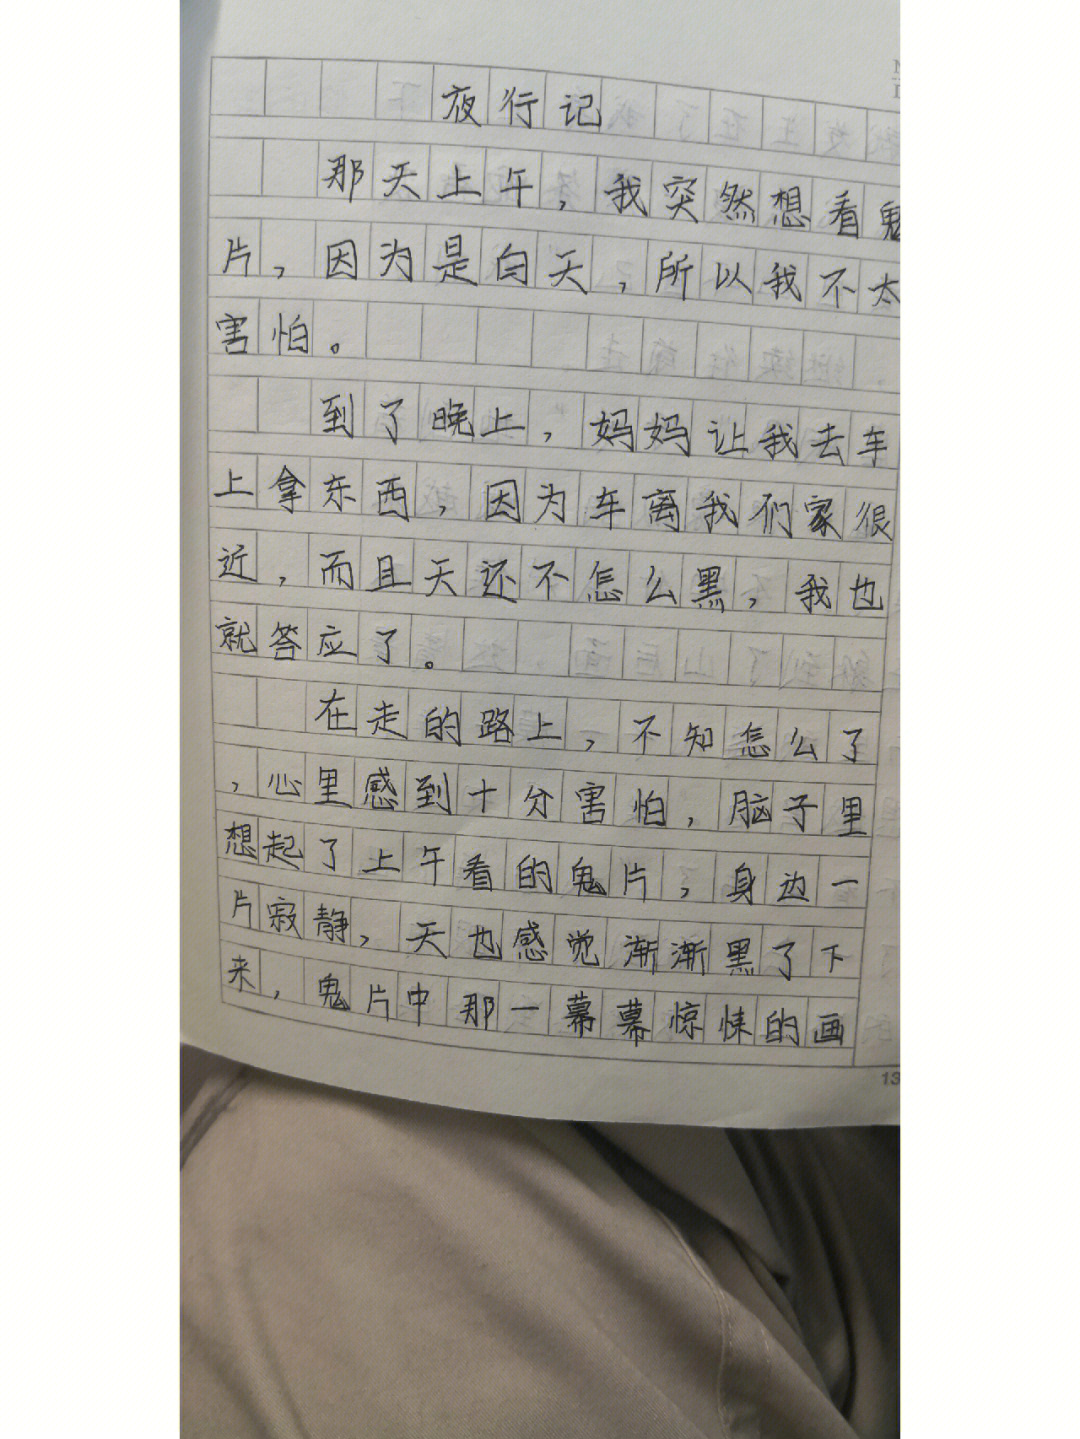 夜行记
那天上午，我突然想看鬼
片，因为是白天，所以我不太
害怕。
到了晚上，妈妈让我去车
上拿东西，因为车离我们家很
近，而且天还不怎么黑，我也
就答应了。
在走的路上，不知怎么了
，心里感到十分害怕，脑子里
想起了上午看的鬼片，身边一
片寂静，天也感觉渐渐黑了下
来，鬼片中那一幕幕惊悚的画
13